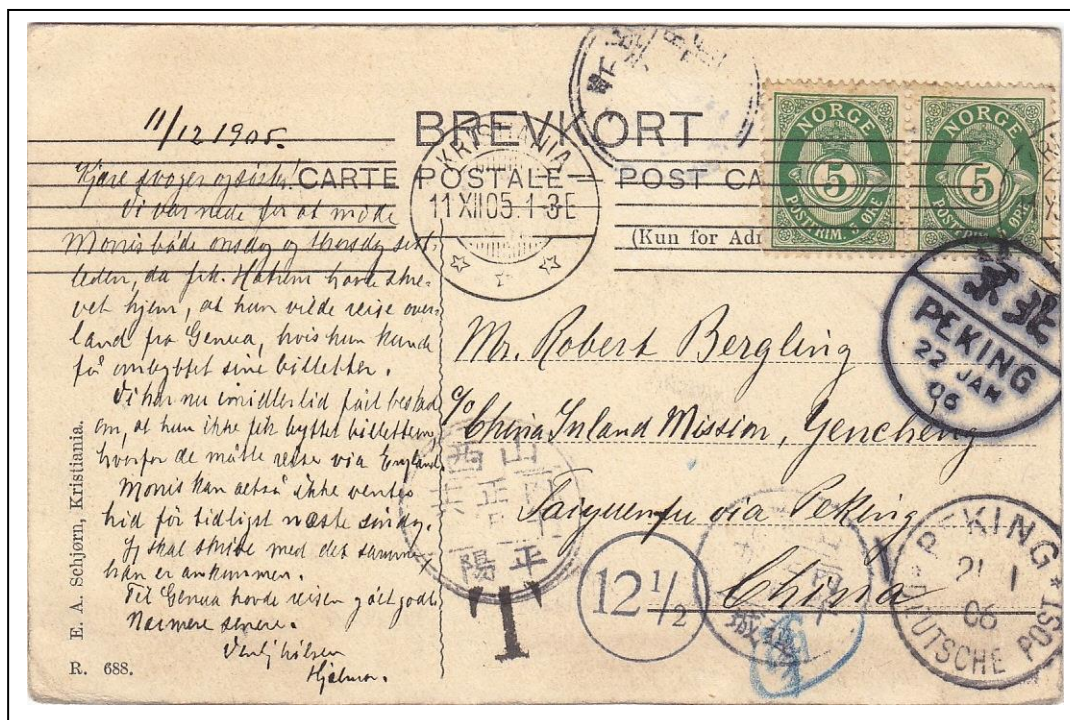 11/12 1905.
BREVKORT
CARTE POSTALE — POST CA
(Kun for Adr
KRISTIANIA
11 XII 05. 1-3 E
NORGE
5
POSTFRIM. 5 ØRE
NORGE
5
POSTFRIM. 5 ØRE
北京
PEKING
22 JAN
06
Kjære svoger og søster!
Vi var nede for at møde
Monis både onsdag og thorsdag sidst
leden, da frk. Hatrem havde skre-
vet hjem, at hun vilde reise over-
land fra Genua, hvis hun kunde
få ombyttet sine billetter.
Vi har nu imidlertid fået besked
om, at hun ikke fik byttet billetterne,
hvorfor de måtte reise via England.
Monis kan altså ikke ventes
hid før tidligst næste søndag.
Jg skal skrive med det samme
han er ankommen.
Til Genua havde reisen gået godt.
Nærmere senere.
Venlig hilsen
Hjalmar.
Mr. Robert Bergling
c/o China Inland Mission, Yencheng
Taiyuenfu via Peking
China
山西
正
平陽
T
12 1/2
PEKING
21 1
06
DEUTSCHE POST
E. A. Schjørn, Kristiania.
R. 688.